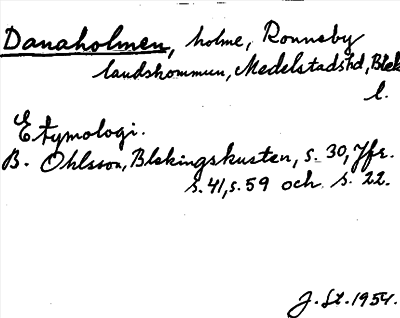 Danaholmen, holme, Ronneby
landskommun, Medelstadshd, Blek
l.
Etymologi.
B. Ohlsson, Blekingskusten, s. 30, Jfr.
s. 41, s. 59 och s. 22.
J. St. 1954.